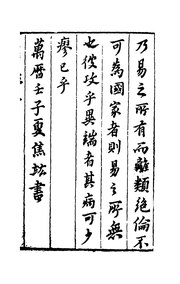 乃易之所有而離類絕倫不
可為國家者則易之所無
也彼攻乎異端者其病可少
瘳已乎
萬曆壬子夏焦竑書